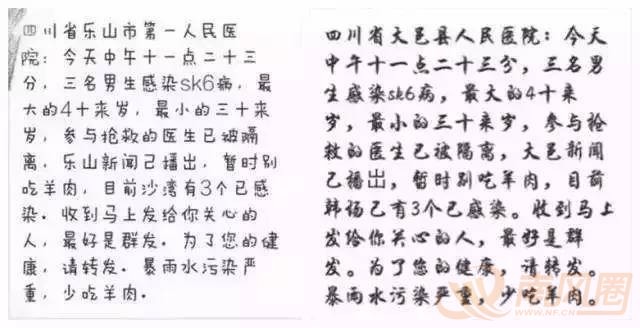 四川省乐山市第一人民医
院：今天中午十一点二十三
分，三名男生感染sk6病，最
大的4十来岁，最小的三十来
岁，参与抢救的医生已被隔
离，乐山新闻己播出，暂时别
吃羊肉，目前沙湾有3个已感
染．收到马上发给你关心的
人，最好是群发．为了您的健
康，请转发．暴雨水污染严
重，少吃羊肉．
四川省大邑县人民医院：今天
中午十一点二十三分，三名男
生感染sk6病，最大的4十来
岁，最小的三十来岁，参与抢
救的医生已被隔离，大邑新闻
己播出，暂时别吃羊肉，目前
韩场己有3个已感染。收到马上
发给你关心的人，最好是群
发。为了您的健康，请转发。
暴雨水污染严重，少吃羊肉。
南风圈
WWW.NF.CN